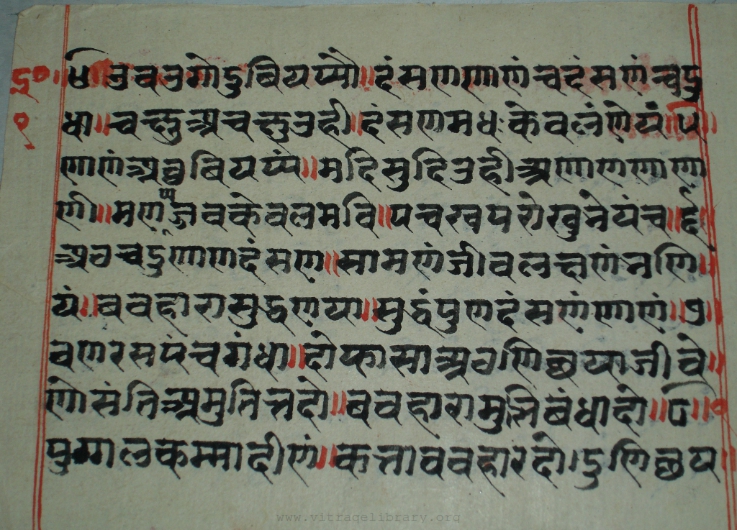 द्र०॥३॥उवउगोदुवियप्पो॥दंसणणाणंचदंसणंचदु
१ धा॥चक्खुअचक्खुउही॥दंसणमधकेवलंणेयं॥४॥
णाणंअट्ठवियप्पं॥मदिसुदिउहीअणाणणाणा
णी॥मणपज्जवकेवलमवि॥पच्चखपरोखुभेयंच॥५॥
अठचदुणाणदंसण॥सामणंजीवलक्खणंभणि॥
यं॥ववहारासुद्धणया॥सुद्धंपुणदंसणंणाणं॥६
वणरसपंचगंधा॥दोफासाअठणिच्छयाजीवे॥
णोसंतिअमुतितदो॥ववहारामुत्तिबंधादो॥७॥
पुग्गलकम्मादीणं॥कत्ताववहारदो।दुणिच्छय॥
www.vitragelibrary.org